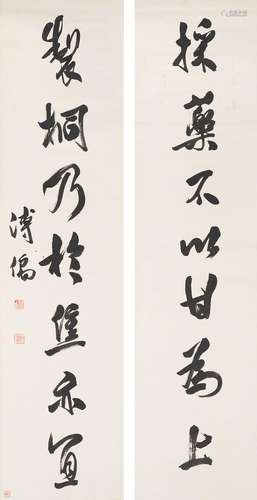 採藥不以甘為上
製桐乃於焦亦宜
溥儒